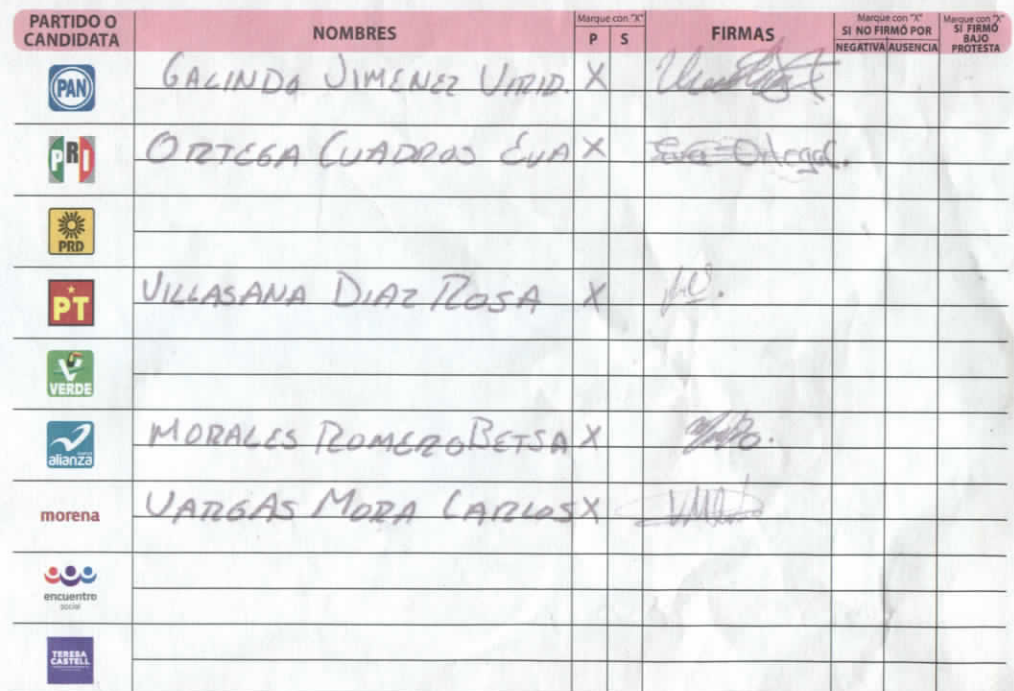 PARTIDO O CANDIDATA
NOMBRES
Marque con "X"
P S
FIRMAS
Marque con "X"
SI NO FIRMÓ POR
NEGATIVA AUSENCIA
Marque con "X"
SI FIRMÓ BAJO PROTESTA
PAN GALINDO JIMENEZ VIRID. X
PRI ORTEGA CUADROS EVA X Eva Ortega C.
PRD
PT VILLASANA DIAZ ROSA X
VERDE
alianza MORALES ROMERO BETSA X
morena VARGAS MORA CARLOS X
encuentro social
TERESA CASTELL